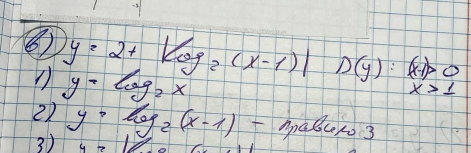 в) y = 2 + |log₂(x-1)| D(y): (x-1)>0
x>1
1) y = log₂x
2) y = log₂(x-1) – правило 3
3) y =